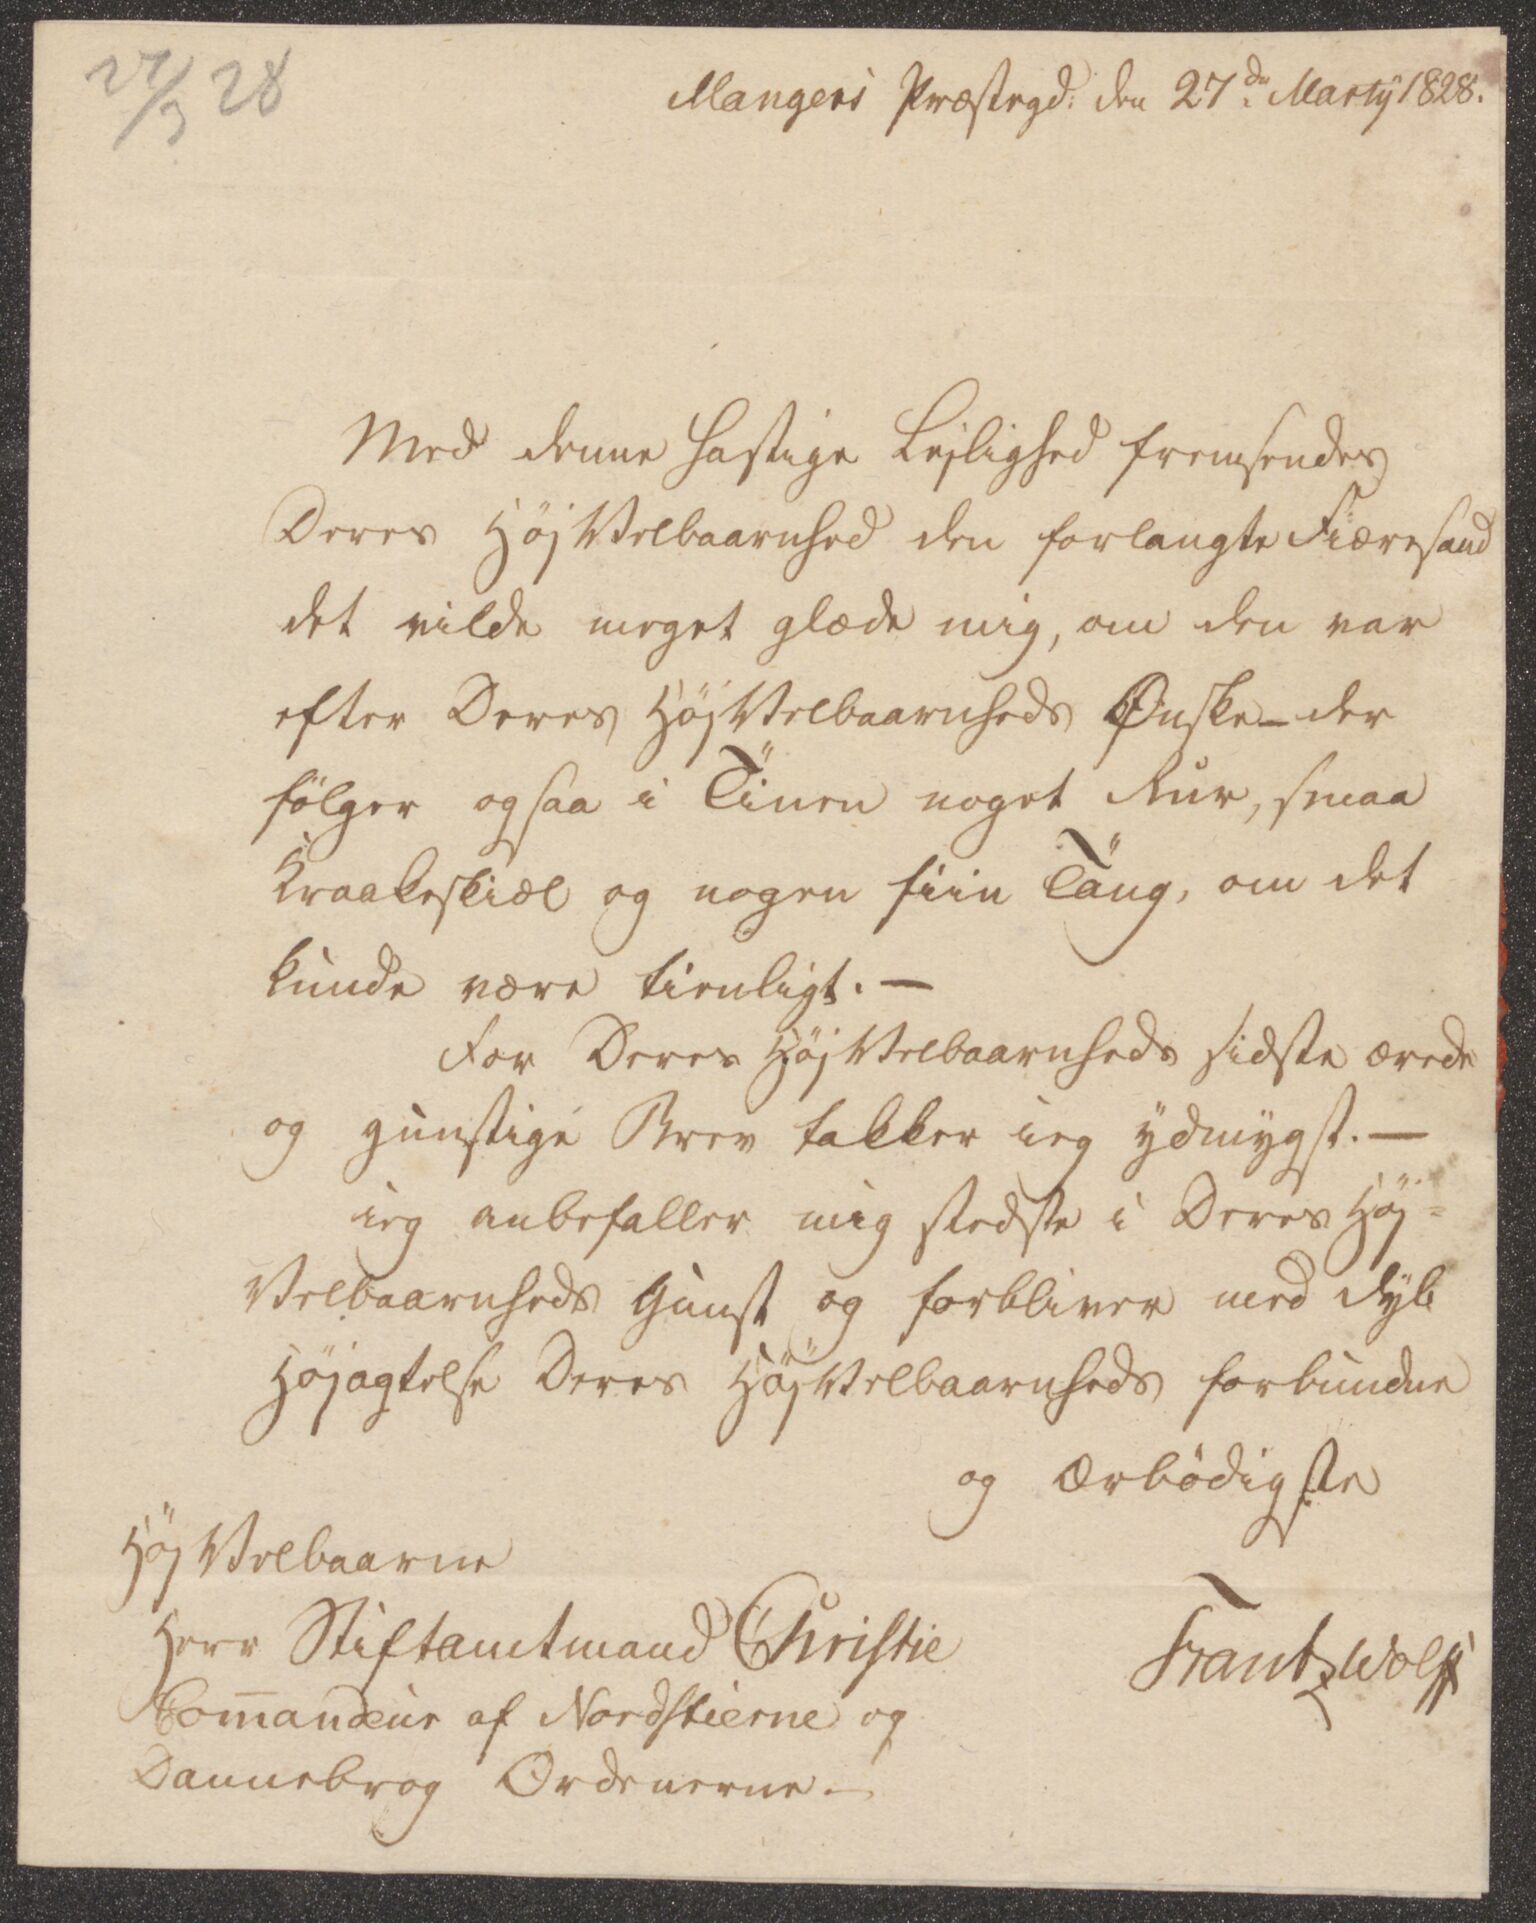 27/3 28
Mangers Præstegd: den 27de Martij 1828.
Med denne hastige Lejlighed fremsendes
Deres HöjVelbaarnhed den forlangte Fiæresand
det vilde meget glæde mig, om den var
efter Deres HöjVelbaarnheds Ønske – der
fölger ogsaa i Tinen noget Rur, smaa
Kraakeskiæl og nogen fiin Tang, om det
kunde være tienligt. —
For Deres HöjVelbaarnheds sidste ærede
og gunstige Brev takker ieg ydmygst. —
ieg anbefaller mig stedste i Deres Höj=
Velbaarnheds Gunst og forbliver med dyb
Höjagtelse Deres HöjVelbaarnheds forbundne
og Ærbödigste
HöjVelbaarne
Herr Stiftamtmand Christie
Frantz Wolff
Commandeur af Nordstierne og
Dannebrog Ordenerne. —